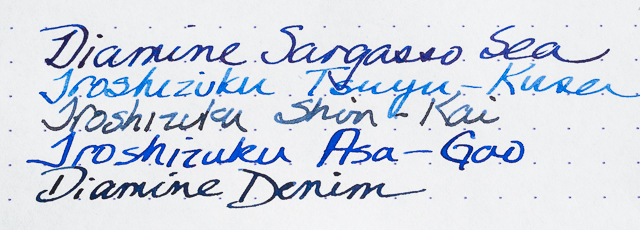 Diamine Sargasso Sea
Iroshizuku Tsuyu-Kusa
Iroshizuku Shin-Kai
Iroshizuku Asa-Gao
Diamine Denim